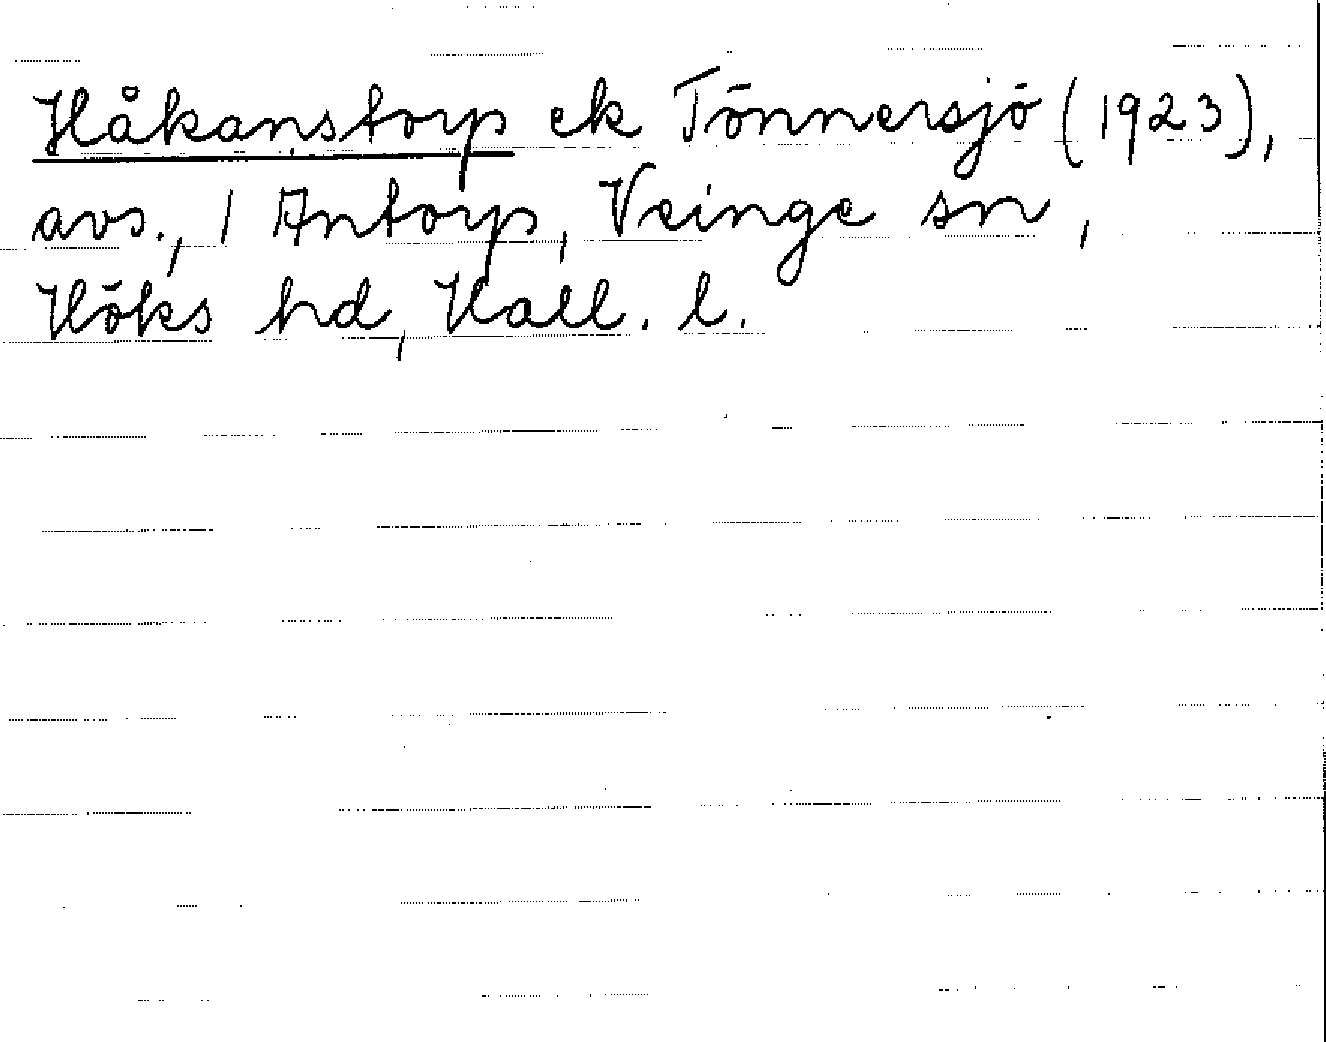 Håkanstorp ek Tönnersjö (1923),
avs., 1 Antorp, Veinge sn,
Höks hd, Hall. l.